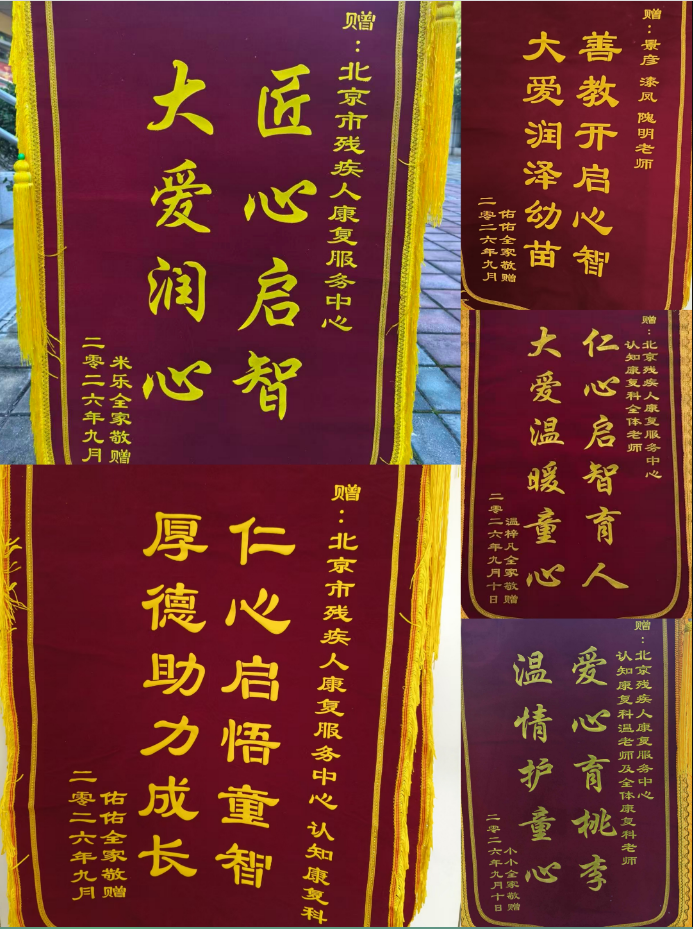 赠：北京市残疾人康复服务中心
匠心启智
大爱润心
米乐全家敬赠
二零二六年九月
赠：景彦 漆凤 隗明老师
善教开启心智
大爱润泽幼苗
佑佑全家敬赠
二零二六年九月
赠：北京残疾人康复服务中心
认知康复科全体老师
仁心启智育人
大爱温暖童心
温梓凡全家敬赠
二零二六年九月十日
赠：北京市残疾人康复服务中心 认知康复科
仁心启悟童智
厚德助力成长
佑佑全家敬赠
二零二六年九月
赠：北京残疾人康复服务中心
认知康复科温老师及全体康复科老师
爱心育桃李
温情护童心
小小全家敬赠
二零二六年九月十日